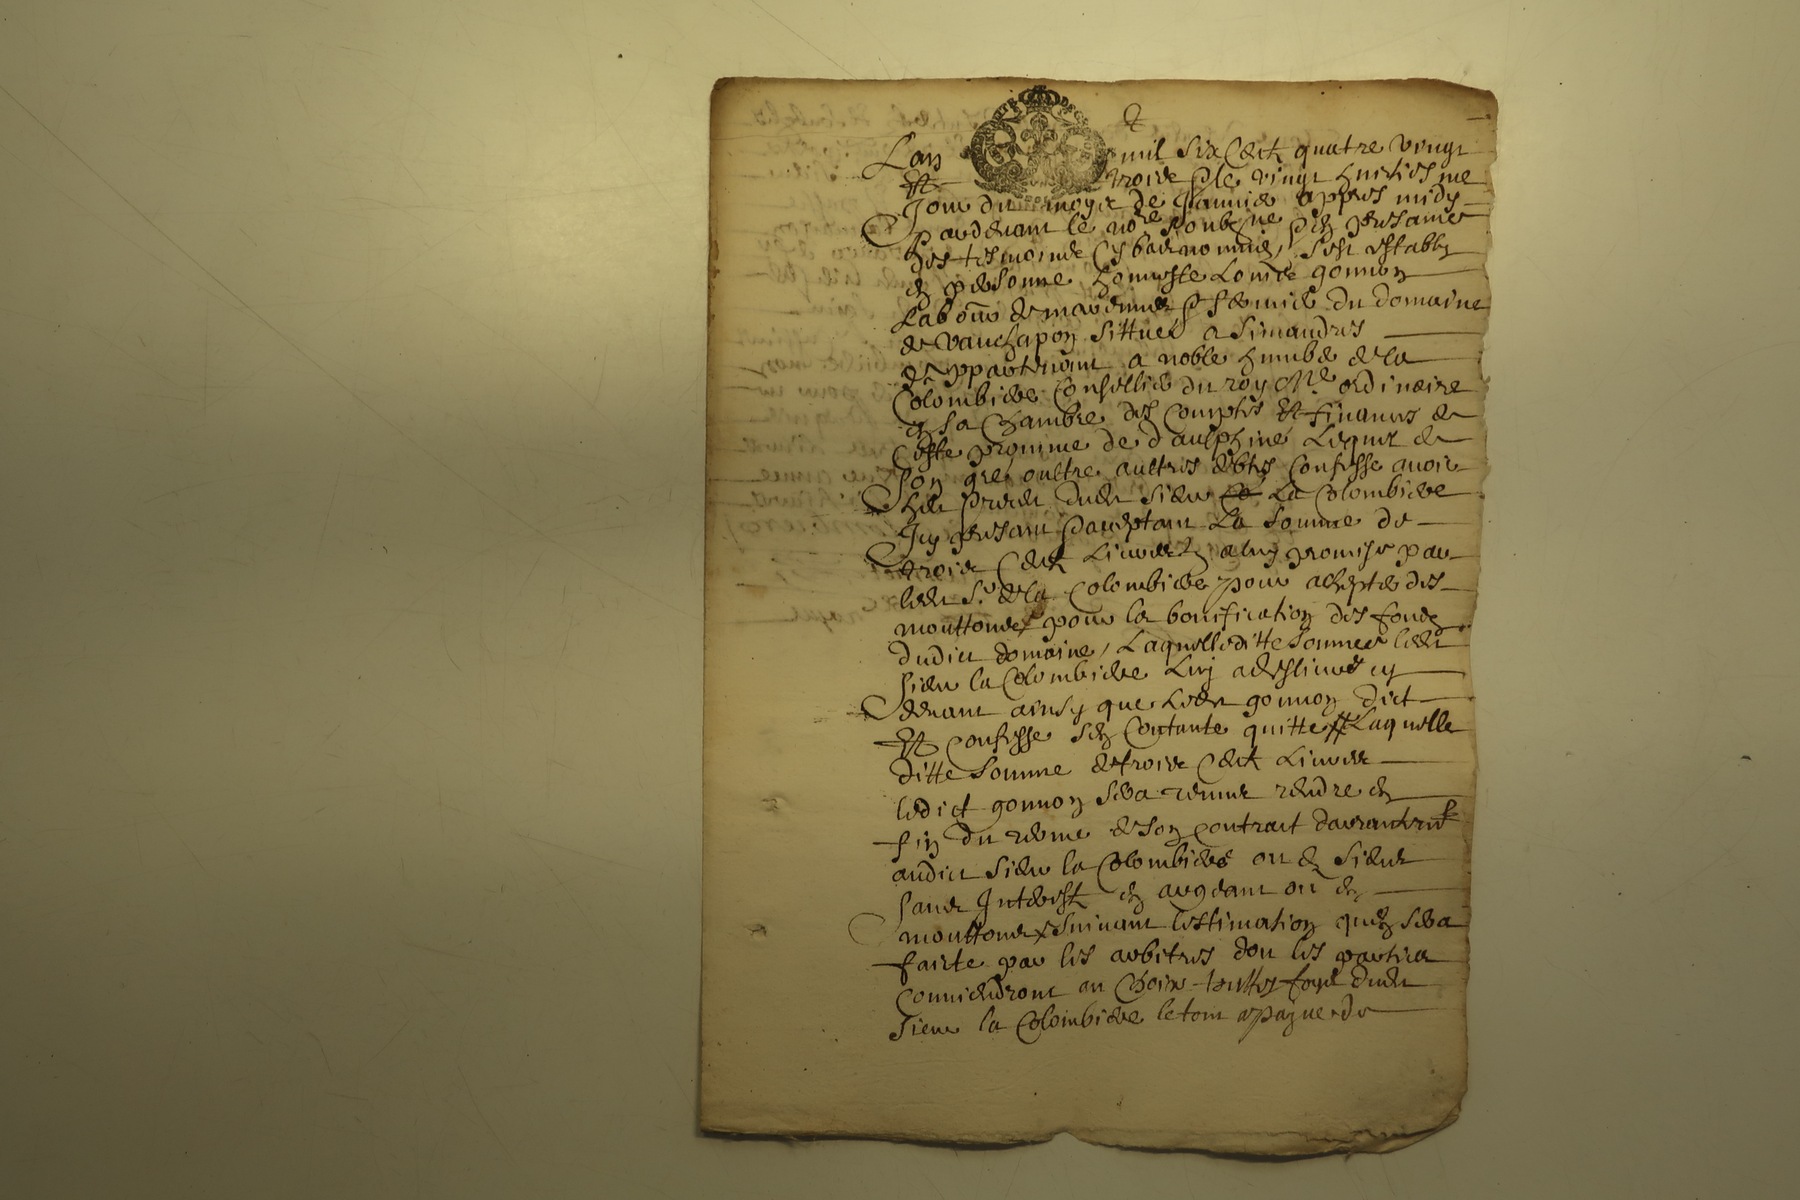 Lan mil six Cent quatre vingt
Et trois & le vingt huictiesme
Jour du moys de Januier appres midy
pardeuant le no.re soub.ne & en presance
des tesmoins Cy bas nommes, sest estably
en personne honneste Louis gonnon
Labour de & fermier du domaine
de Vauchapon sittué a Simandres
appartenant a noble humbe de la
Colombiere Conseillier du roy Me ordinaire
en sa Chambre des Comptes Et finances de
Ceste prouince de daulphine Lequel de
son gre oultre aultres debtes Confesse auoir
heu & receu dudt sieur La Colombiere
Icy presant & acceptant La somme de
trois Cent Liures a luy promise par
ledt Sr de la Colombiere pour achepter des
mouttons pour la bonification des fonds
dudict domaine, Laquelle ditte somme ledt
sieur la Colombiere Luy a deslivré cy
deuant ainsy que Ledt gonnon dict
Et confesse sen Contante quitte Laquelle
ditte somme de trois Cent Liures
ledict gonnon sera tenut rendre en
fin du terme de son contrait
audict sieur la Colombiere ou es siens
sans Interest en argeant ou en
mouttons suiuant lestimation quen sera
faicte par les arbitres dont les parties
conuiendront au Choix touttes foys dudt
sieur la Colombiere le tout a payne de